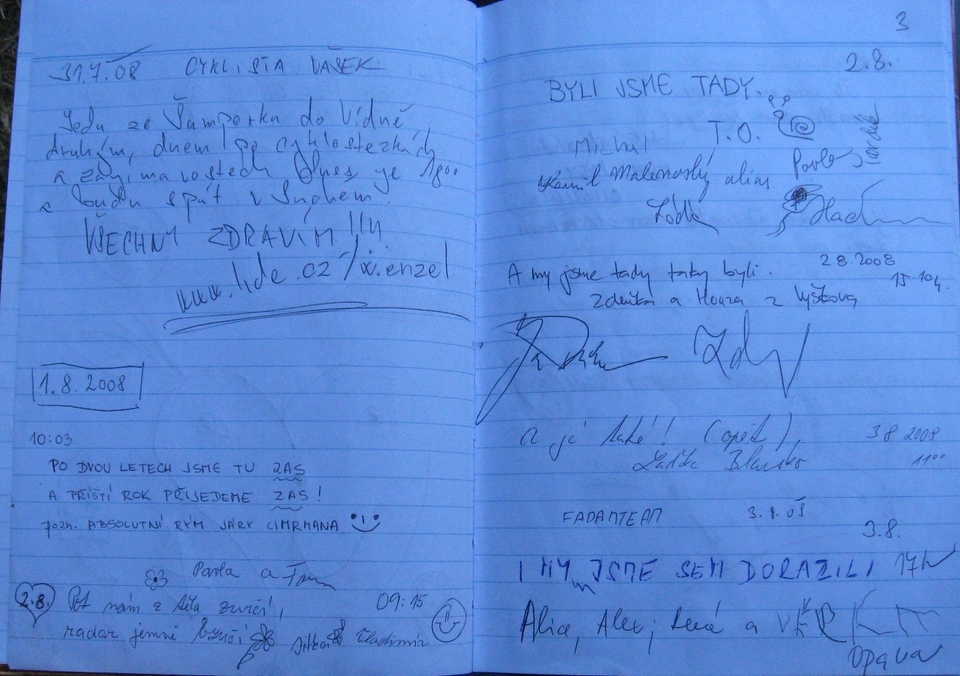 31.7.08 CYKLISTA VAŠEK
Jedu ze Šumperka do Vídně
druhým dnem po cyklostezkách
a zajímavostech Dnes je
a budu spát v
VŠECHNY ZDRAVÍM!!!!
www.lide.cz/w.enzel
1.8.2008
10:03
PO DVOU LETECH JSME TU ZAS
A PŘÍŠTÍ ROK PŘIJEDEME ZAS!
pozn. ABSOLUTNÍ RÝM JÁRY CIMRMANA
Pavla a Tom
2.8. Pot nám z těla zurčí, 09:15
radar jemně bzučí Jitka Vladimír
3
2.8.
BYLI JSME TADY.
Michal T.O.
Kamil Malenovský alias Pavel
A my jsme tady taky byli. 2 8 2008
Zdeňka a Honza z Vyškova
a já také! (opět), 3 8 2008
Blansko 11⁰⁰
FADAMTEAM
3.8.
I MY JSME SEM DORAZILI 17h
Alice, Alex, René a
Opava